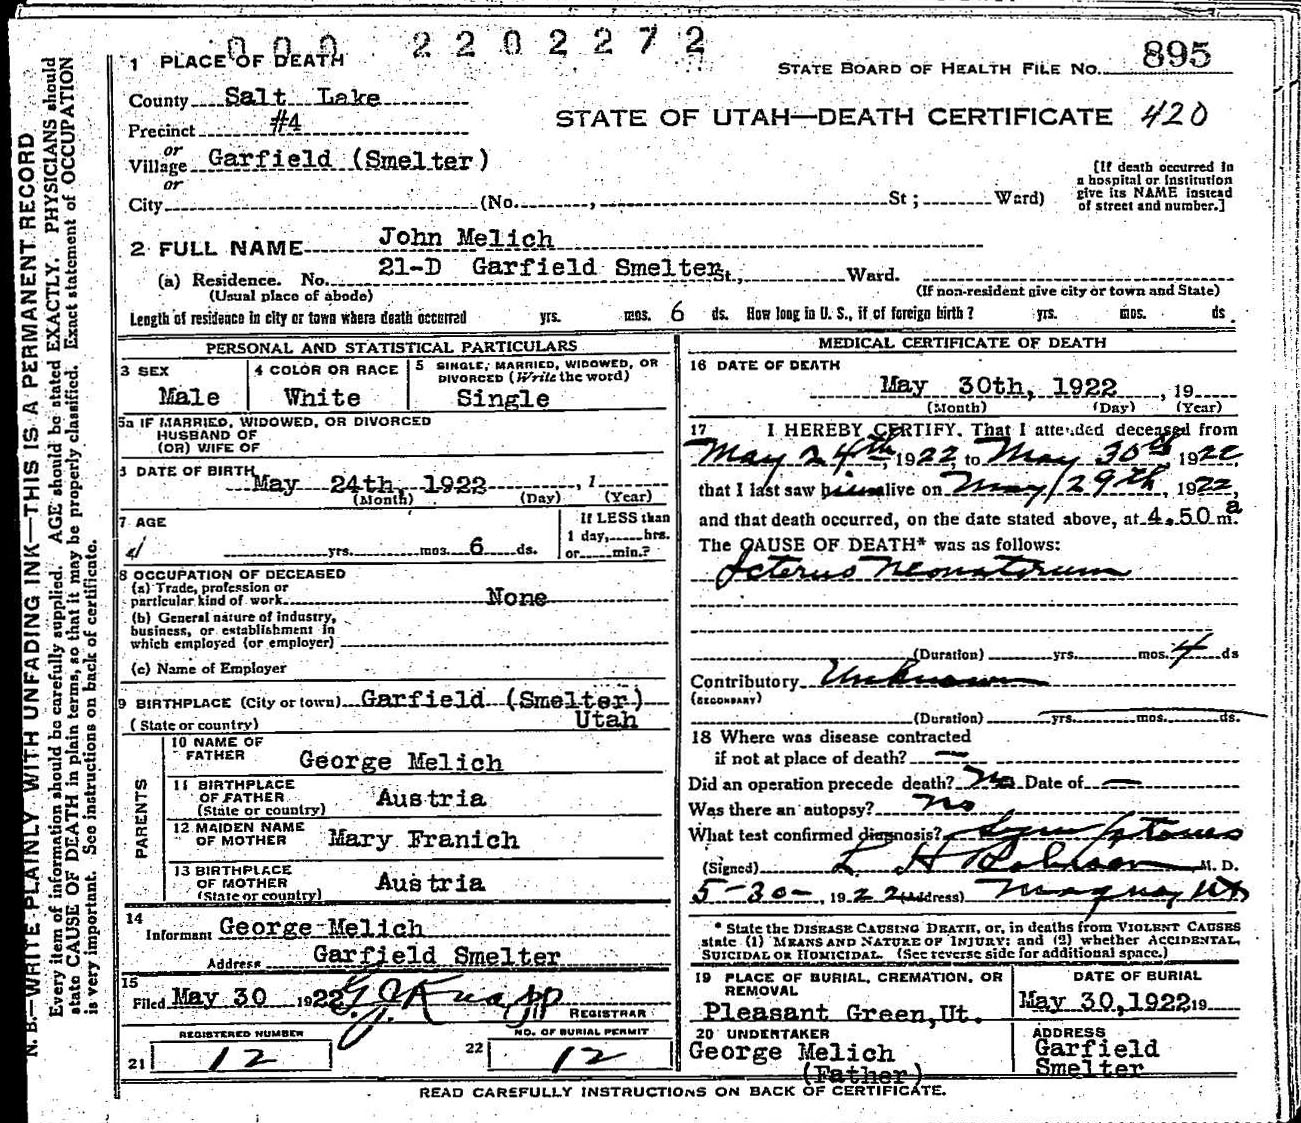 000 2202272
1 PLACE OF DEATH
STATE BOARD OF HEALTH FILE NO. 895
County Salt Lake
STATE OF UTAH—DEATH CERTIFICATE 420
Precinct #4
or
Village Garfield (Smelter)
or
City (No. , St ; Ward)
[If death occurred in
a hospital or institution
give its NAME instead
of street and number.]
2 FULL NAME John Melich
(a) Residence. No. 21-D Garfield Smelter St., Ward.
(Usual place of abode) (If non-resident give city or town and State)
Length of residence in city or town where death occurred yrs. mos. 6 ds. How long in U. S., if of foreign birth? yrs. mos. ds.
PERSONAL AND STATISTICAL PARTICULARS
3 SEX
Male
4 COLOR OR RACE
White
5 SINGLE, MARRIED, WIDOWED, OR
DIVORCED (Write the word)
Single
5a IF MARRIED, WIDOWED, OR DIVORCED
HUSBAND OF
(OR) WIFE OF
DATE OF BIRTH
May 24th, 1922 , 1
(Month) (Day) (Year)
7 AGE
yrs. mos. 6 ds.
If LESS than
1 day, hrs.
or min.?
8 OCCUPATION OF DECEASED
(a) Trade, profession or
particular kind of work None
(b) General nature of industry,
business, or establishment in
which employed (or employer)
(c) Name of Employer
9 BIRTHPLACE (City or town) Garfield (Smelter)
(State or country) Utah
PARENTS
10 NAME OF
FATHER George Melich
11 BIRTHPLACE
OF FATHER Austria
(State or country)
12 MAIDEN NAME
OF MOTHER Mary Franich
13 BIRTHPLACE
OF MOTHER Austria
(State or country)
14
Informant George Melich
Address Garfield Smelter
15
Filed May 30 1922 G. J. Knapp
REGISTRAR
REGISTERED NUMBER
21 12
NO. OF BURIAL PERMIT
22 12
MEDICAL CERTIFICATE OF DEATH
16 DATE OF DEATH
May 30th, 1922 , 19
(Month) (Day) (Year)
17 I HEREBY CERTIFY, That I attended deceased from
May 24th, 1922 to May 30th 1922,
that I last saw him alive on May 29th, 1922,
and that death occurred, on the date stated above, at 4.50 a m.
The CAUSE OF DEATH* was as follows:
Icterus Neonatorum
(Duration) yrs. mos. 4 ds
Contributory Unknown
(SECONDARY)
(Duration) yrs. mos. ds.
18 Where was disease contracted
if not at place of death? —
Did an operation precede death? No Date of —
Was there an autopsy? No
What test confirmed diagnosis? Symptoms
(Signed) L H Robinson M. D.
5-30-, 1922 (Address) Magna Ut
* State the DISEASE CAUSING DEATH, or, in deaths from VIOLENT CAUSES
state (1) MEANS AND NATURE OF INJURY; and (2) whether ACCIDENTAL,
SUICIDAL OR HOMICIDAL. (See reverse side for additional space.)
19 PLACE OF BURIAL, CREMATION, OR
REMOVAL
Pleasant Green, Ut.
DATE OF BURIAL
May 30, 1922 19
20 UNDERTAKER
George Melich
(Father)
ADDRESS
Garfield
Smelter
READ CAREFULLY INSTRUCTIONS ON BACK OF CERTIFICATE.
N. B.—WRITE PLAINLY WITH UNFADING INK—THIS IS A PERMANENT RECORD
Every item of information should be carefully supplied. AGE should be stated EXACTLY. PHYSICIANS should
state CAUSE OF DEATH in plain terms, so that it may be properly classified. Exact statement of OCCUPATION
is very important. See instructions on back of certificate.